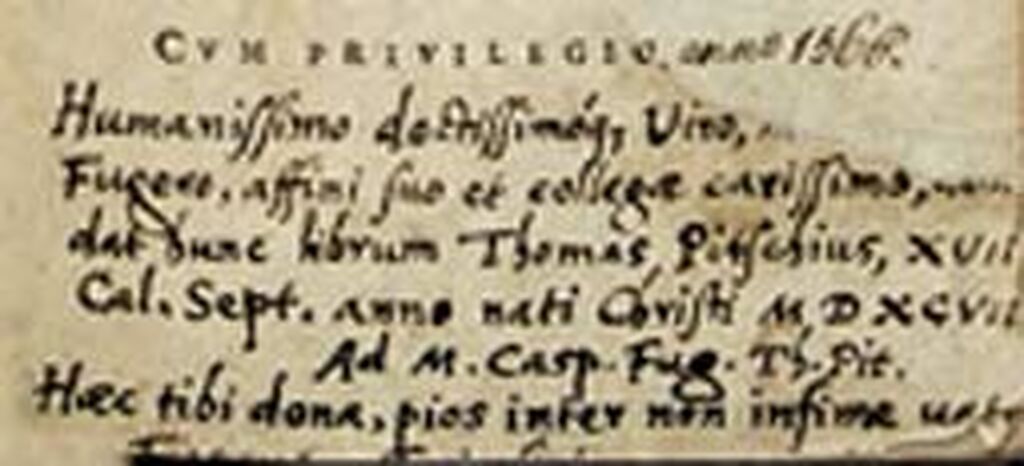 CVM PRIVILEGIO. anno 1566.
Humanissimo doctissimóq, Viro,
Fugero, affini suo et collegæ carissimo,
dat hunc librum Thomas Pitschius, XVII
Cal. Sept. anno nati Christi M D XCVII
Ad M. Casp. Fug. Th. Pit.
Hæc tibi dona, pios inter non infime